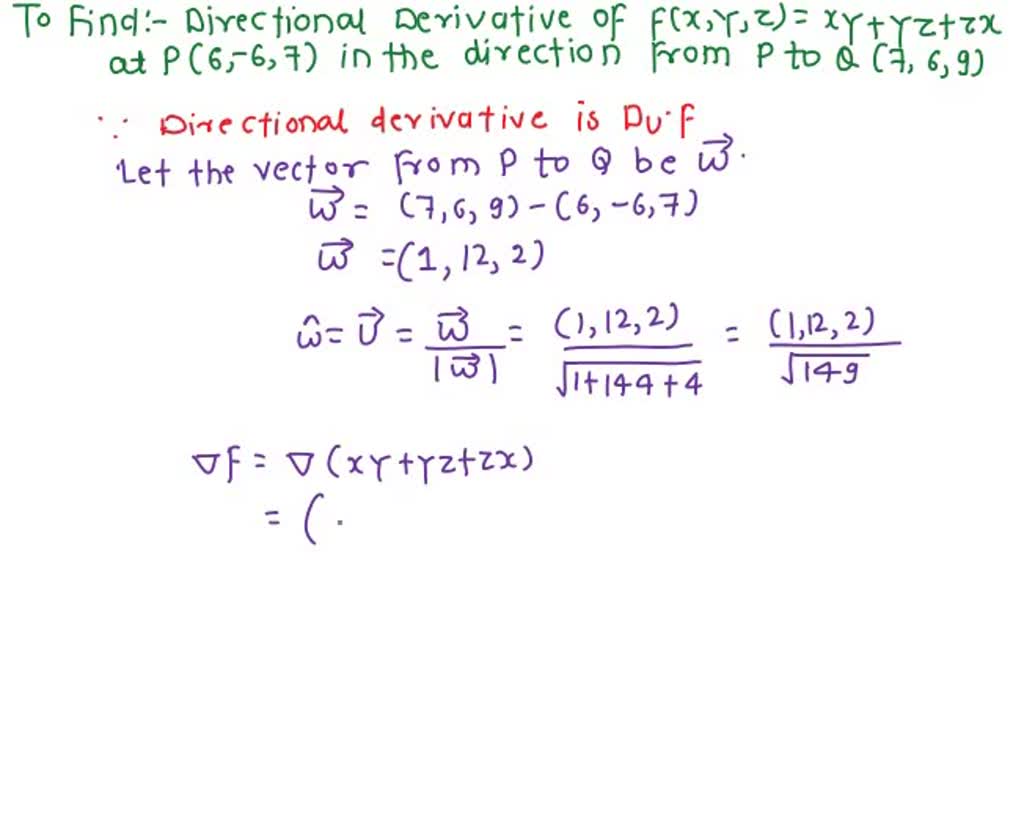 To Find:- Directional Derivative of F(x,Y,z)= xY+Yz+zx
at P(6,-6,7) in the direction from P to Q (7, 6, 9)
∵ Directional derivative is Du·F
Let the vector from P to Q be w⃗.
w⃗ = (7,6,9)-(6,-6,7)
w⃗ =(1,12,2)
ŵ = U⃗ = w⃗/|w⃗| = (1,12,2)/√1+144+4 = (1,12,2)/√149
∇F = ∇(xY+Yz+zx)
= ( .